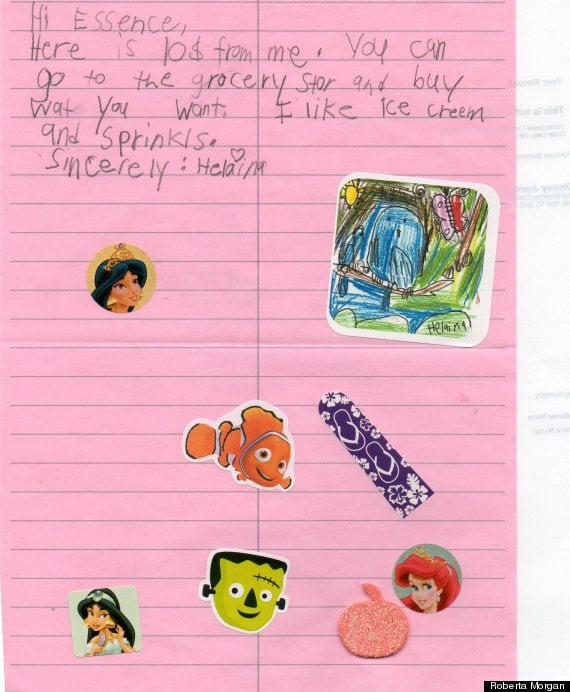 Hi Essence,
Here is 10$ from me. You can
go to the grocery stor and buy
wate you want. I like ice creem
and sprinkls.
Sincerely: Helaina
Helaina
Roberta Morgan